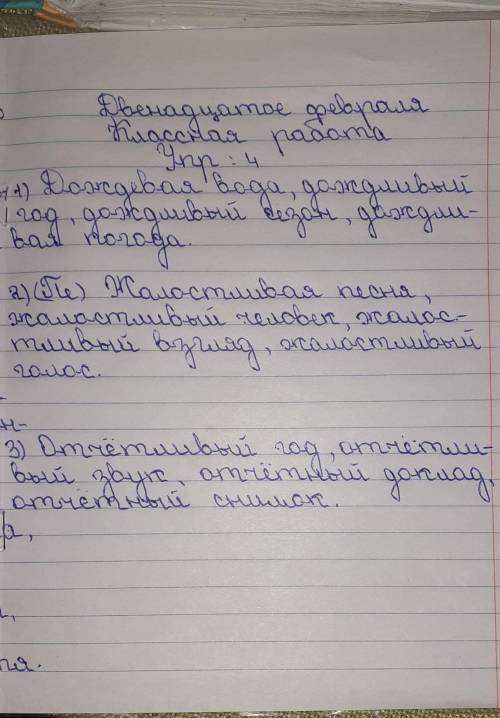 Двенадцатое февраля
Классная работа
Упр: 4
1) Дождевая вода, дождливый
год, дождливый сезон, дождли-
вая погода.
2) (Пе) Жалостливая песня,
жалостливый человек, жалос-
тливый взгляд, жалостливый
голос.
н-
3) Отчётливый год, отчётли-
вый звук, отчётный доклад,
отчётный снимок.
а,
ия.